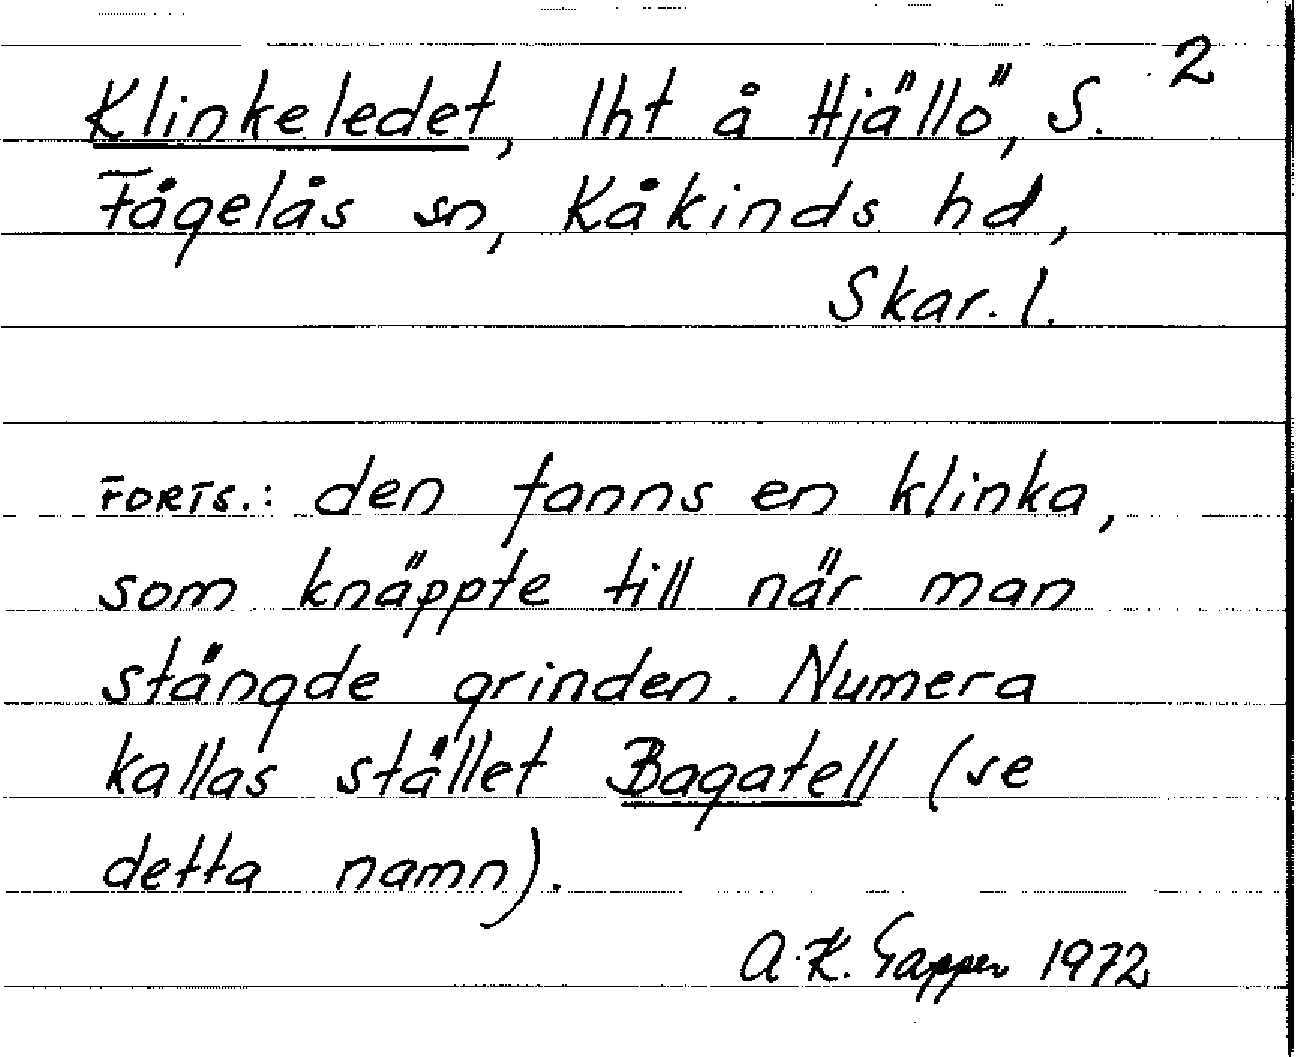 2
Klinkeledet, lht å Hjällö, S.
Fågelås sn, Kåkinds hd,
Skar. l.
FORTS.: den fanns en klinka,
som knäppte till när man
stängde grinden. Numera
kallas stället Bagatell (se
detta namn).
A.K. 1972